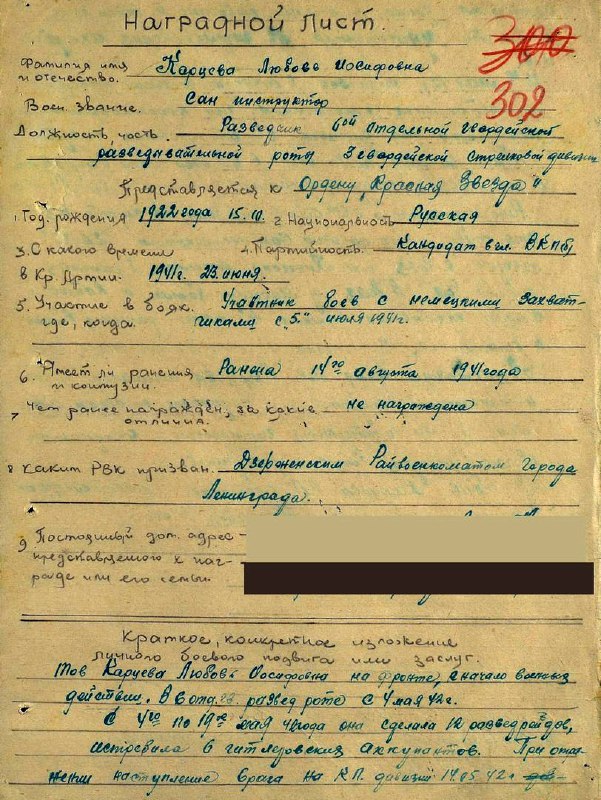 Наградной лист.
300
302
Фамилия имя и отечество. Карцева Любовь Иосифовна
Воен. звание. Сан инструктор
Должность часть. Разведчик 6ой отдельной гвардейской
разведывательной роты 3 гвардейской стрелковой дивизии
Представляется к Ордену „Красная Звезда"
1. Год. рождения 1922 года 15. 2. Национальность Русская
3. С какого времени 4. Партийность. Кандидат в чл. ВКП(б)
в Кр. Армии. 1941г. 23. июня.
5. Участие в боях. Участник боев с немецкими захват-
где, когда. чиками с „5." июля 1941г.
6. Имеет ли ранения и контузии. Ранена 14го августа 1941 года
7. Чем ранее награжден, за какие отличия. не награждена
8. Каким РВК призван. Дзержинским Райвоенкоматом города
Ленинграда.
9. Постоянный дом. адрес -
представляемого к наг-
раде или его семьи.
Краткое, конкретное изложение
личного боевого подвига или заслуг.
Тов Карцева Любовь Иосифовна на фронте, с начало военных
действии. В 6 отд. развед роте с 4 мая 42г.
С 4го по 19ое мая 42 года она сделала 12 разведрейдов,
истребила 6 гитлеровских аккупантов. При отра-
жении наступление врага на К.П. дивизии 14.05.42г